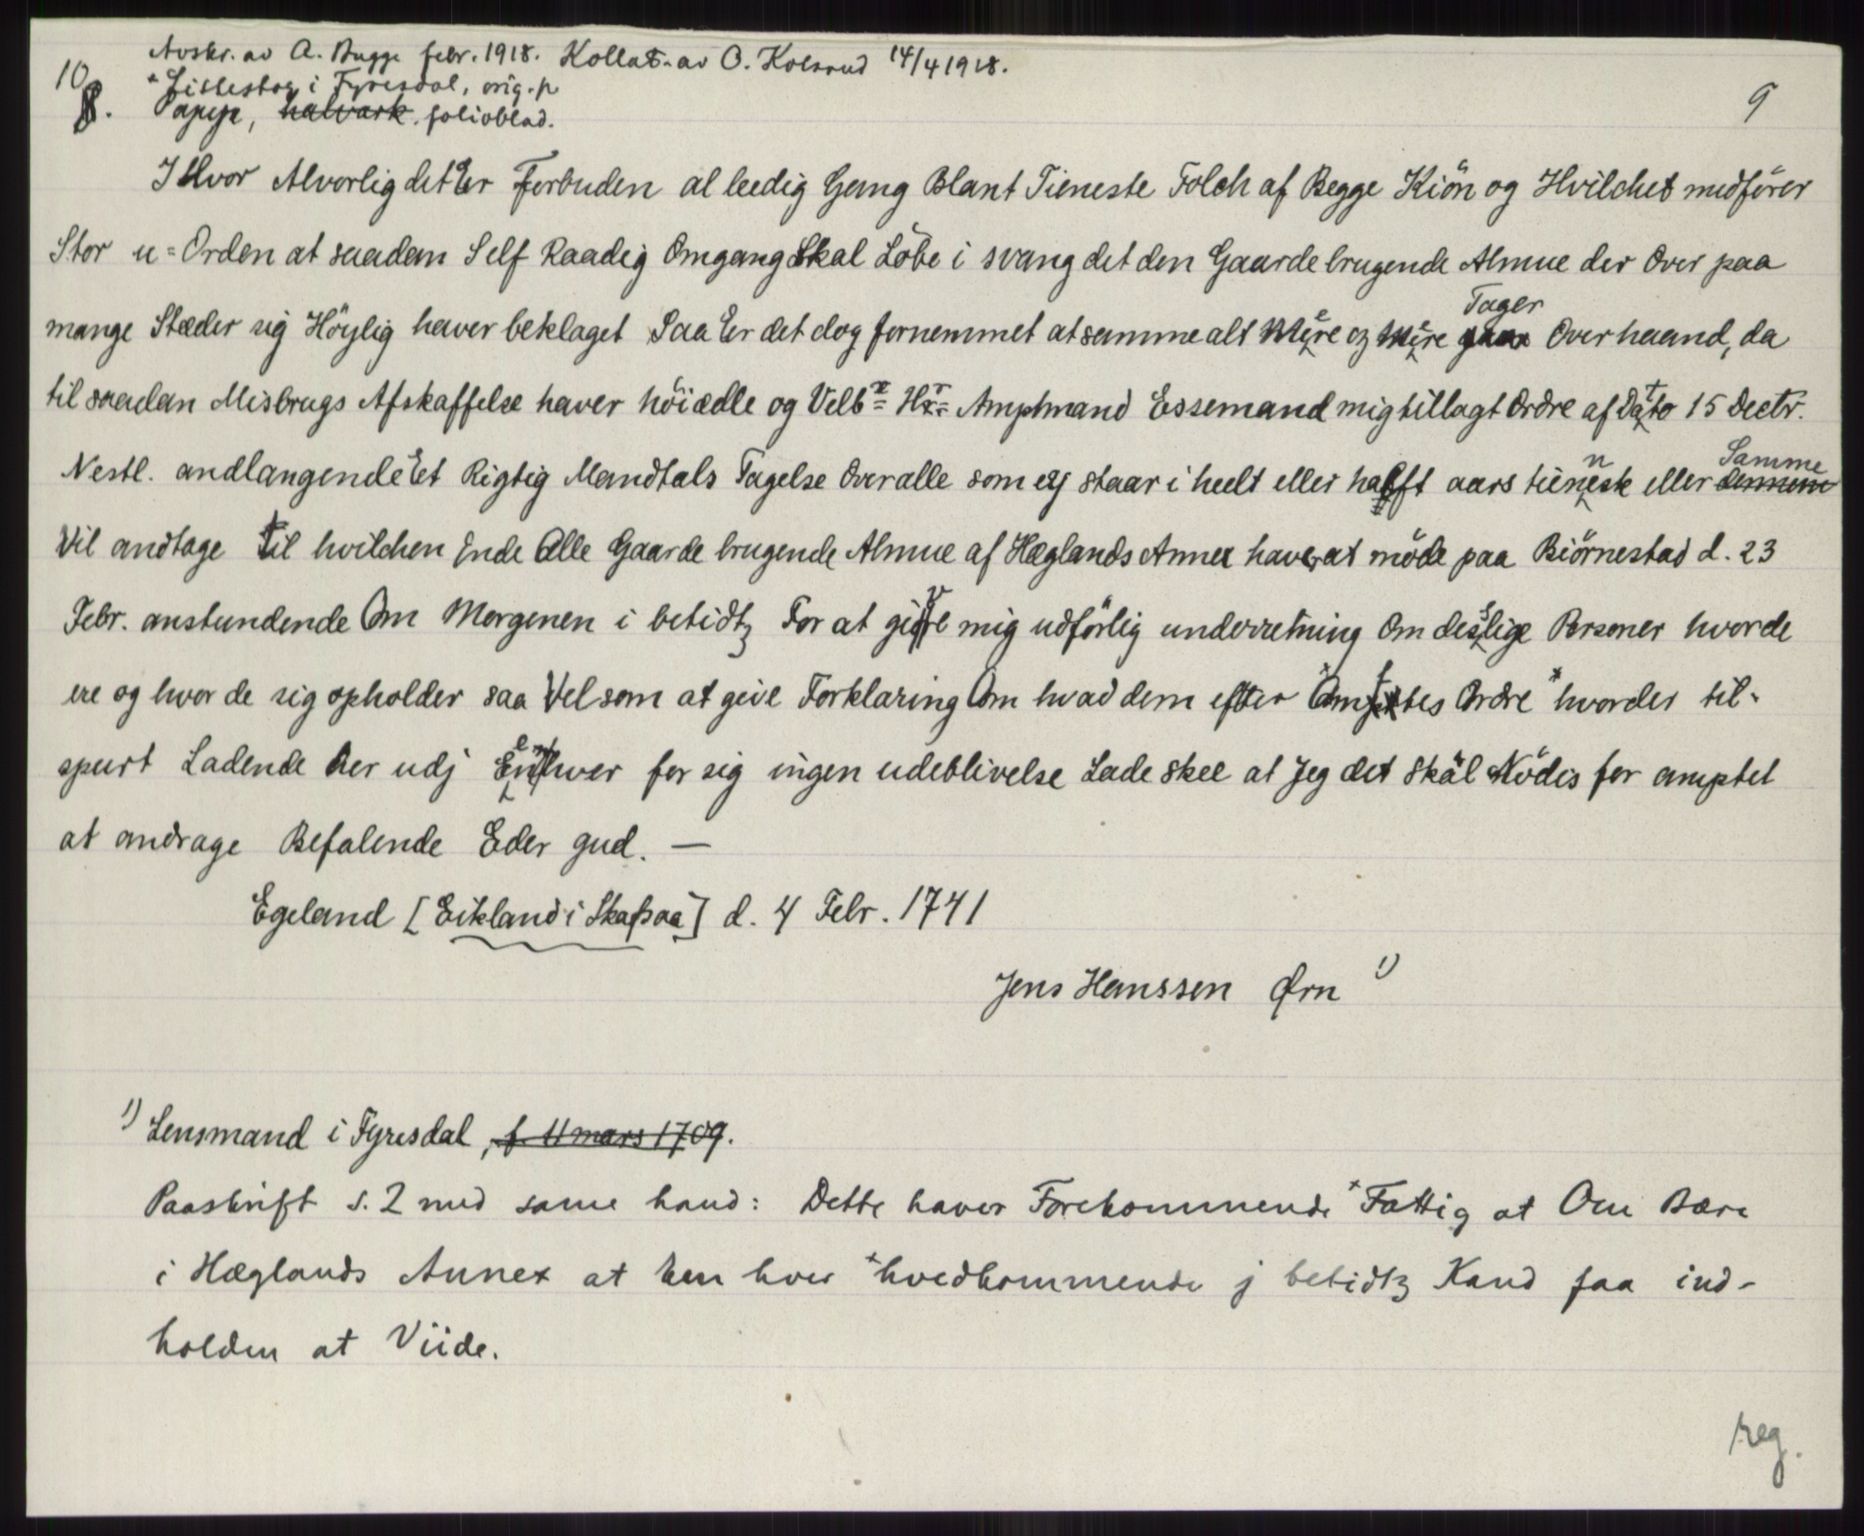 Avskr. av A. Bugge febr. 1918. Kollat. av O. Kolsrud 14/4 1918.
10 * Lillestog i Fyresdal, orig. p
8. Papyr, halvark, folioblad. 9
I Hvor Alvorlig det Er Forbuden al leedig Gang Blant Tieneste Folch af Begge Kiön og Hvilchet medförer
Stor u=Orden at saadan Self Raadig Omgang Skal Löbe i svang det den Gaarde brugende Almue der Over paa
mange Stæder sig Höylig haver beklaget Saa Er det dog fornemmet at samme alt Mere og Mere gaar Tager Over haand, da
til saadan Misbrugs Afskaffelse haver höiædle og Velbn Hr Amptmand Essemand mig tillagt Ordre af Dato 15 Dectr.
Nestl. andlangende Et Rigtig Mandtals Tagelse Over alle som ej staar i heelt eller halft aars tieneste eller Samme
Vil andtage til hvilchen Ende Alle Gaarde brugende Almue af Hæglands Annex haver at möde paa Biörnestad d. 23
Febr. anstundende Om Morgenen i betidtz For at give mig udförlig underretning Om deslige Personer hvor de
ere og hvor de sig opholder saa Vel som at give Forklaring Om hvad dem efter Amtes Ordre * hvorder til-
spurt Ladende her udj Enhver for sig ingen udeblivelse Lade skee at Jeg det skäl Nödis for amptet
at andrage Befalende Eder gud. —
Egeland [Eikland i Skafsaa] d. 4 Febr. 1741
Jens Hanssen Ørn 1)
1) Lensmand i Fyresdal, f. 11 mars 1709.
Paaskrift s. 2 med same hand: Dette haver Forekommende * Fattig at Om Bære
i Hæglands Annex at hen hver * hvedkommende j betidtz Kand faa ind-
holden at Viide.
reg.